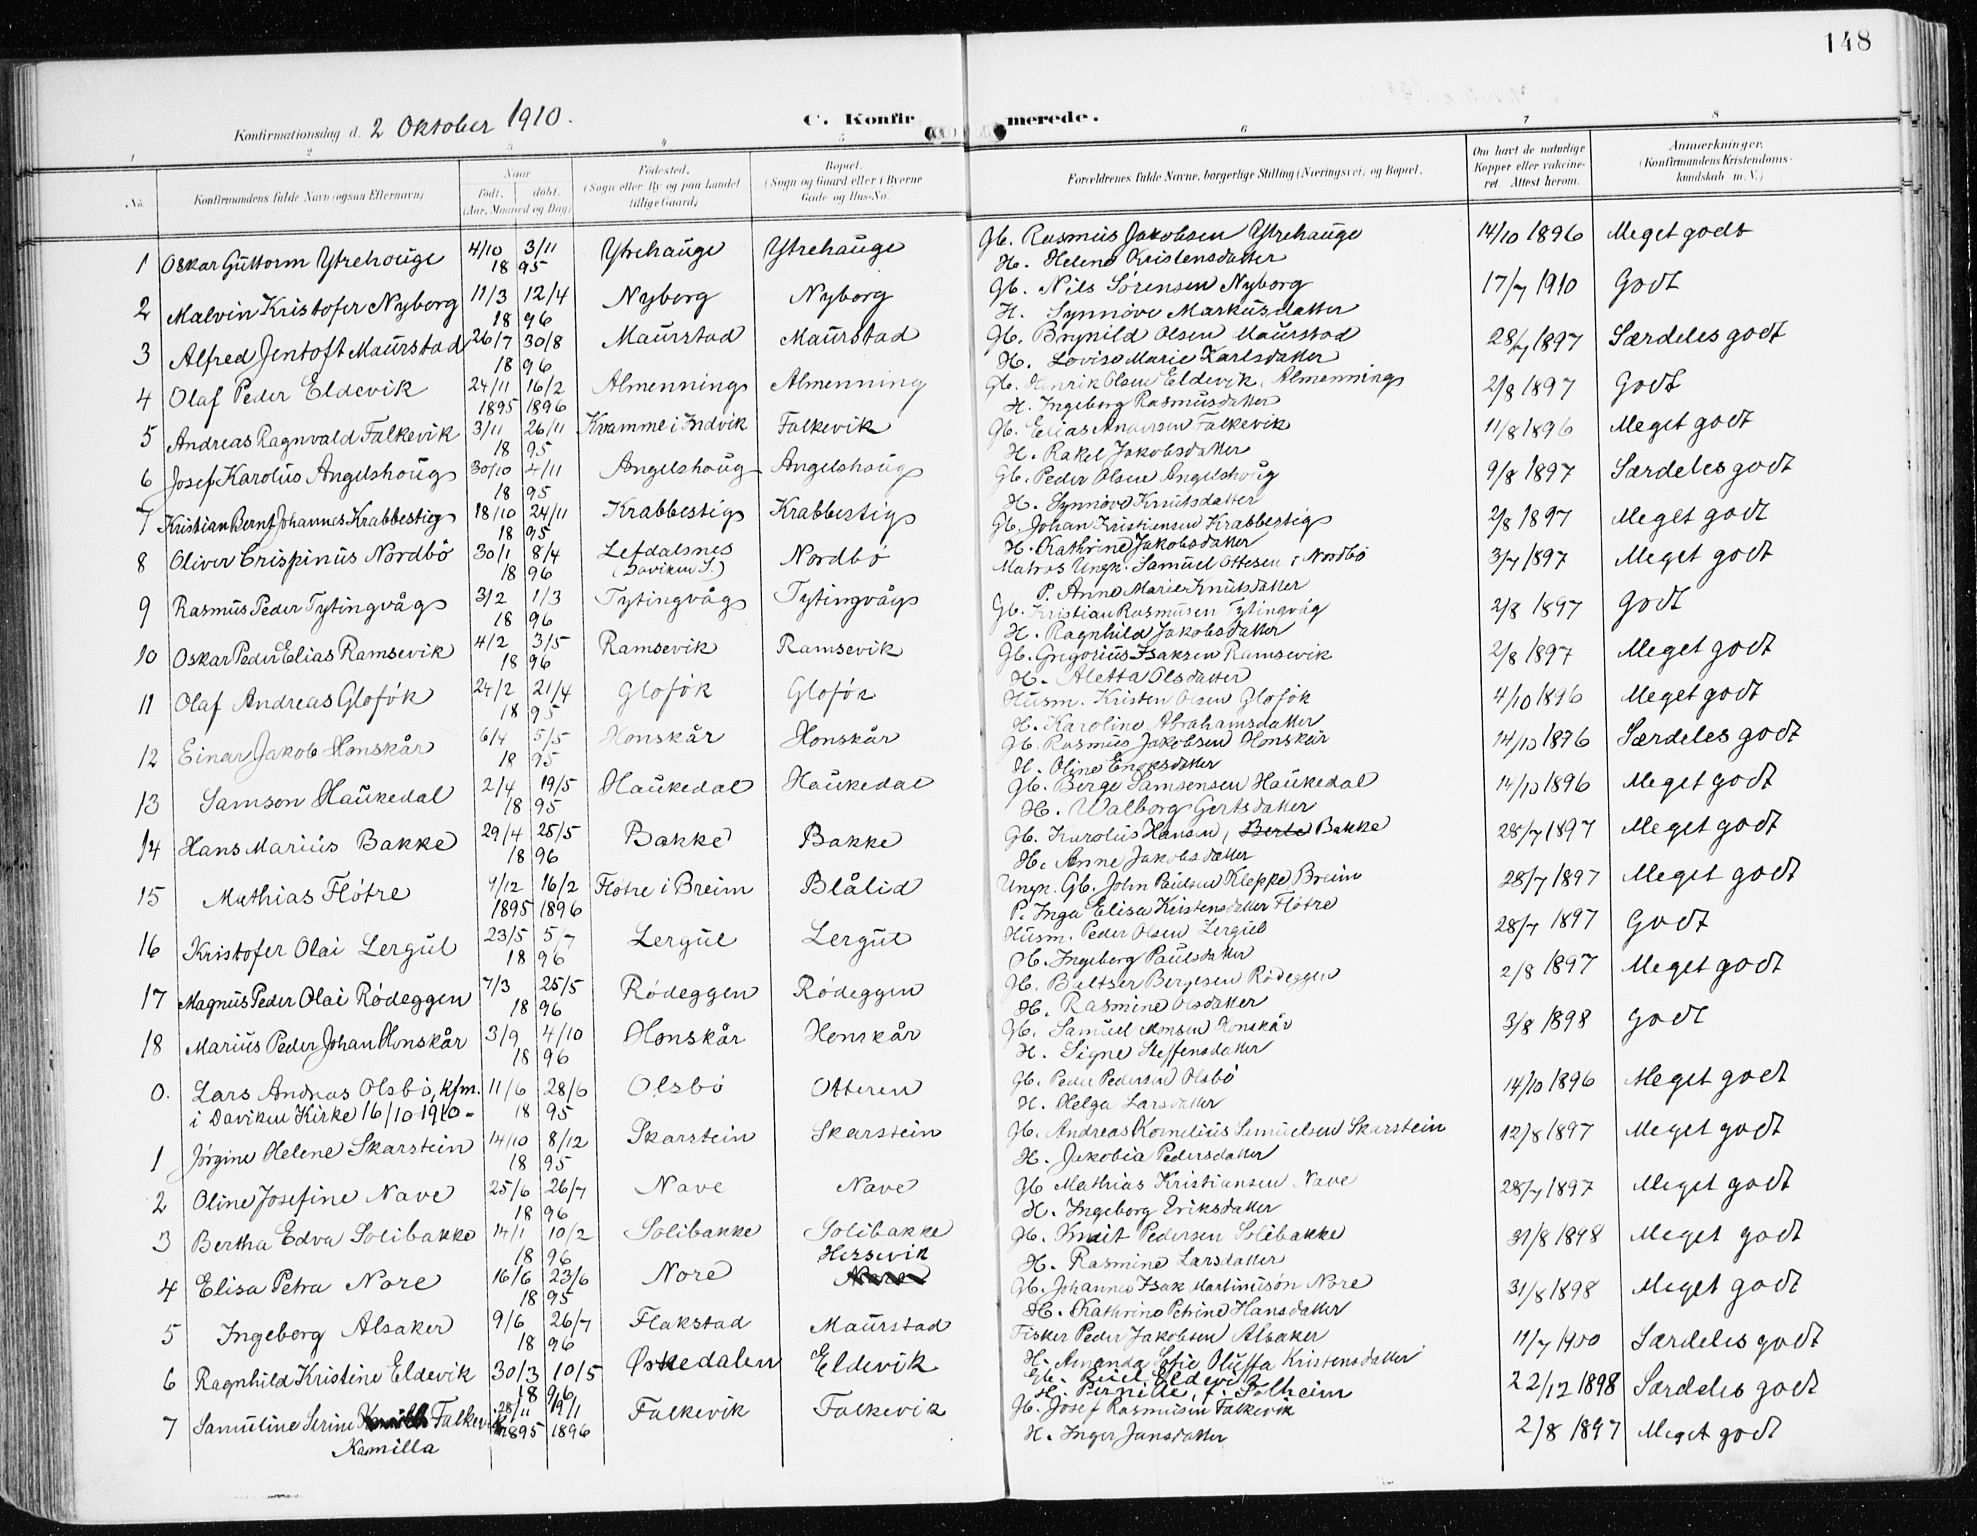 148
Konfirmationsdag d. 2 Oktober 1910.
C. Konfirmerede.
1 2 3 4 5 6 7 8
No. Konfirmandens fulde Navn (ogsaa Efternavn) Naar født. døbt. (Aar, Maaned og Dag) Fødested. (Sogn eller By og paa Landet tillige Gaard) Bopæl. (Sogn og Gaard eller i Byerne Gade og Hus-No. Forældrenes fulde Navne, borgerlige Stilling (Næringsvei) og Bopæl. Om havt de naturlige Kopper eller vakcineret Attest herom. Anmærkninger. (Konfirmandens Kristendomskundskab m. V.)
1 Oskar Guttorm Ytrehouge 4/10 3/11 1895 Ytrehauge Ytrehauge Gb. Rasmus Jakobsen Ytrehauge 14/10 1896 Meget godt
H. Helene Kristensdatter
2 Malvin Kristofer Nyborg 11/3 12/4 1896 Nyborg Nyborg Gb. Nils Sørensen Nyborg 17/7 1910 Godt
H. Synnøve Markusdatter
3 Alfred Jentoft Maurstad 26/7 30/8 1896 Maurstad Maurstad Gb. Brynild Olsen Maurstad 28/7 1897 Særdeles godt
H. Lovise Marie Karlsdatter
4 Olaf Peder Eldevik 24/11 1895 16/2 1896 Almenning Almenning Gb. Henrik Olsen Eldevik, Almenning 2/8 1897 Godt
H. Ingeborg Rasmusdatter
5 Andreas Ragnvald Falkevik 3/11 26/11 1895 Kvamme i Indvik Falkevik Gb. Elias Andersen Falkevik 11/8 1896 Meget godt
H. Rakel Jakobsdatter
6 Josef Karolus Angelshoug 30/10 4/11 1895 Angelshoug Angelshoug Gb. Peder Olsen Angelshoug 9/8 1897 Særdeles godt
H. Synnøve Knutsdatter
7 Kristian Bernt Johannes Krabbestig 18/10 24/11 1895 Krabbestig Krabbestig Gb. Johan Kristiansen Krabbestig 2/8 1897 Meget godt
H. Kathrine Jakobsdatter
8 Oliver Crispinus Nordbø 30/1 8/4 1896 Lefdalsnes (Daviken S.) Nordbø Matros Ungk. Samuel Ottesen i Nordbø 3/7 1897 Meget godt
P. Anne Marie Knutsdatter
9 Rasmus Peder Tytingvåg 3/2 1/3 1896 Tytingvåg Tytingvåg Gb. Kristian Rasmusen Tytingvåg 2/8 1897 Godt
H. Ragnhild Jakobsdatter
10 Oskar Peder Elias Ramsevik 4/2 3/5 1896 Ramsevik Ramsevik Gb. Gregorius Isaksen Ramsevik 2/8 1897 Meget godt
H. Aletta Olsdatter
11 Olaf Andreas Gloføk 24/2 21/4 1895 Gloføk Gloføk Husm. Kristen Olsen Gloføk 4/10 1896 Meget godt
H. Karoline Abrahamsdatter
12 Einar Jakob Honskår 6/4 5/5 1895 Honskår Honskår Gb. Rasmus Jakobsen Honskår 14/10 1896 Særdeles godt
H. Oline Enoksdatter
13 Samson Haukedal 2/4 19/5 1895 Haukedal Haukedal Gb. Berge Samsensen Haukedal 14/10 1896 Meget godt
H. Walborg Gertsdatter
14 Hans Marius Bakke 29/4 25/5 1896 Bakke Bakke Gb. Karolus Hansen, Berte Bakke 28/7 1897 Meget godt
H. Anne Jakobsdatter
15 Mathias Fløtre 9/12 1895 16/2 1896 Fløtre i Breim Blålid Ungk. Gb. John Paulsen Kleppe, Breim 28/7 1897 Meget godt
P. Inga Elisa Kristensdatter Fløtre
16 Kristofer Olai Lergul 23/5 5/7 1896 Lergul Lergul Husm. Peder Olsen Lergul 28/7 1897 Godt
H. Ingeborg Paulsdatter
17 Magnus Peder Olai Rødeggen 7/3 25/5 1896 Rødeggen Rødeggen Gb. Baltser Bergesen Rødeggen 2/8 1897 Meget godt
H. Rasmine Olsdatter
18 Marius Peder Johan Honskår 3/9 4/10 1896 Honskår Honskår Gb. Samuel Monsen Honskår 3/8 1898 Godt
H. Signe Steffensdatter
0. Lars Andreas Olsbø, kfm. 11/6 28/6 1895 Olsbø Otteren Gb. Peder Pedersen Olsbø 14/10 1896 Meget godt
i Daviken Kirke 16/10 1910- H. Helga Larsdatter
1 Jørgine Helene Skarstein 14/10 8/12 1895 Skarstein Skarstein Gb. Andreas Kornelius Samuelsen Skarstein 12/8 1897 Meget godt
H. Jakobia Pedersdatter
2 Oline Josefine Nave 25/6 26/7 1896 Nave Nave Gb Mathias Kristiansen Nave 28/7 1897 Meget godt
H. Ingeborg Eriksdatter
3 Bertha Edva Solibakke 14/1 10/2 1896 Solibakke Solibakke Gb. Knut Pedersen Solibakke 31/8 1898 Meget godt
H. Rasmine Larsdatter
4 Elisa Petra Nore 16/6 23/6 1895 Nore Hessevik Nore Gb. Johannes Isak Martinusøn Nore 31/8 1898 Meget godt
H. Kathrine Petrine Hansdatter
5 Ingeborg Alsaker 9/6 26/7 1896 Flakstad Maurstad Fisker Peder Jakobsen Alsaker 11/7 1900 Særdeles godt
H. Amanda Sofie Olufta Kristensdatter
6 Ragnhild Kristine Eldevik 30/3 10/5 1896 Ørkedalen Eldevik Gb. Eldevik 22/12 1898 Særdeles godt
H. Pernille, f. Solheim
7 Samuline Serine Kamilla Falkevik 28/11 1895 19/1 1896 Falkevik Falkevik Gb. Josef Rasmusen Falkevik 2/8 1897 Meget godt
Kamilla H. Inger Jansdatter